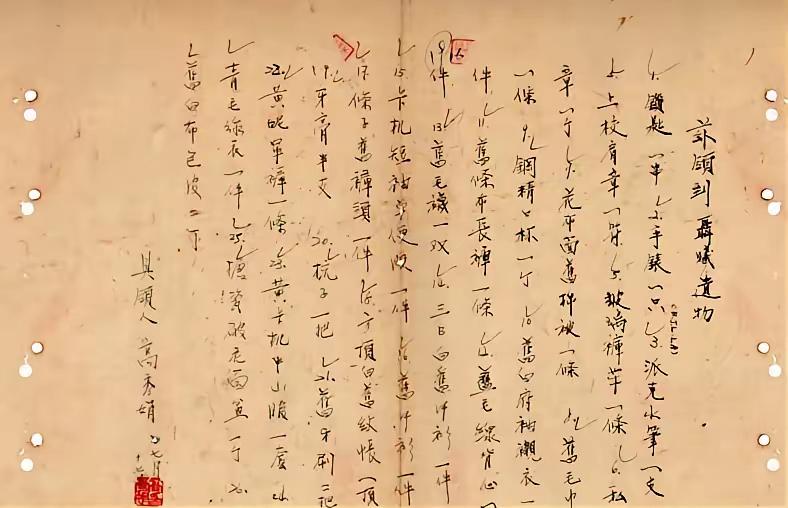 玆領到聶曦遺物
1. 鑰匙一串 2. 手錶一只 3. 派克水筆一支
4. 上校肩章一付 5. 玻璃褲帶一條 6. 私
章一个 7. 花布面舊棉被一條 8. 舊毛巾
一條 9. 鋼精口杯一个 10. 舊白府袖襯衣一
件 11. 舊條布長褲一條 12. 舊毛線背心一
件 13. 舊毛襪一双 14. 三B白舊汗衫一件
15. 卡机短袖軍便服一件 16. 舊汗衫一件
17. 條子舊褲頭一件 18. 方頂白舊紋帳一頂
19. 牙膏半支 20. 梳子一把 21. 舊牙刷二把
22. 黃呢軍褲一條 23. 黃卡机中山服一套 24.
青毛線衣一件 25. 破底面盆一个 26.
舊白布包皮二个
具領人 高秀娟 七月